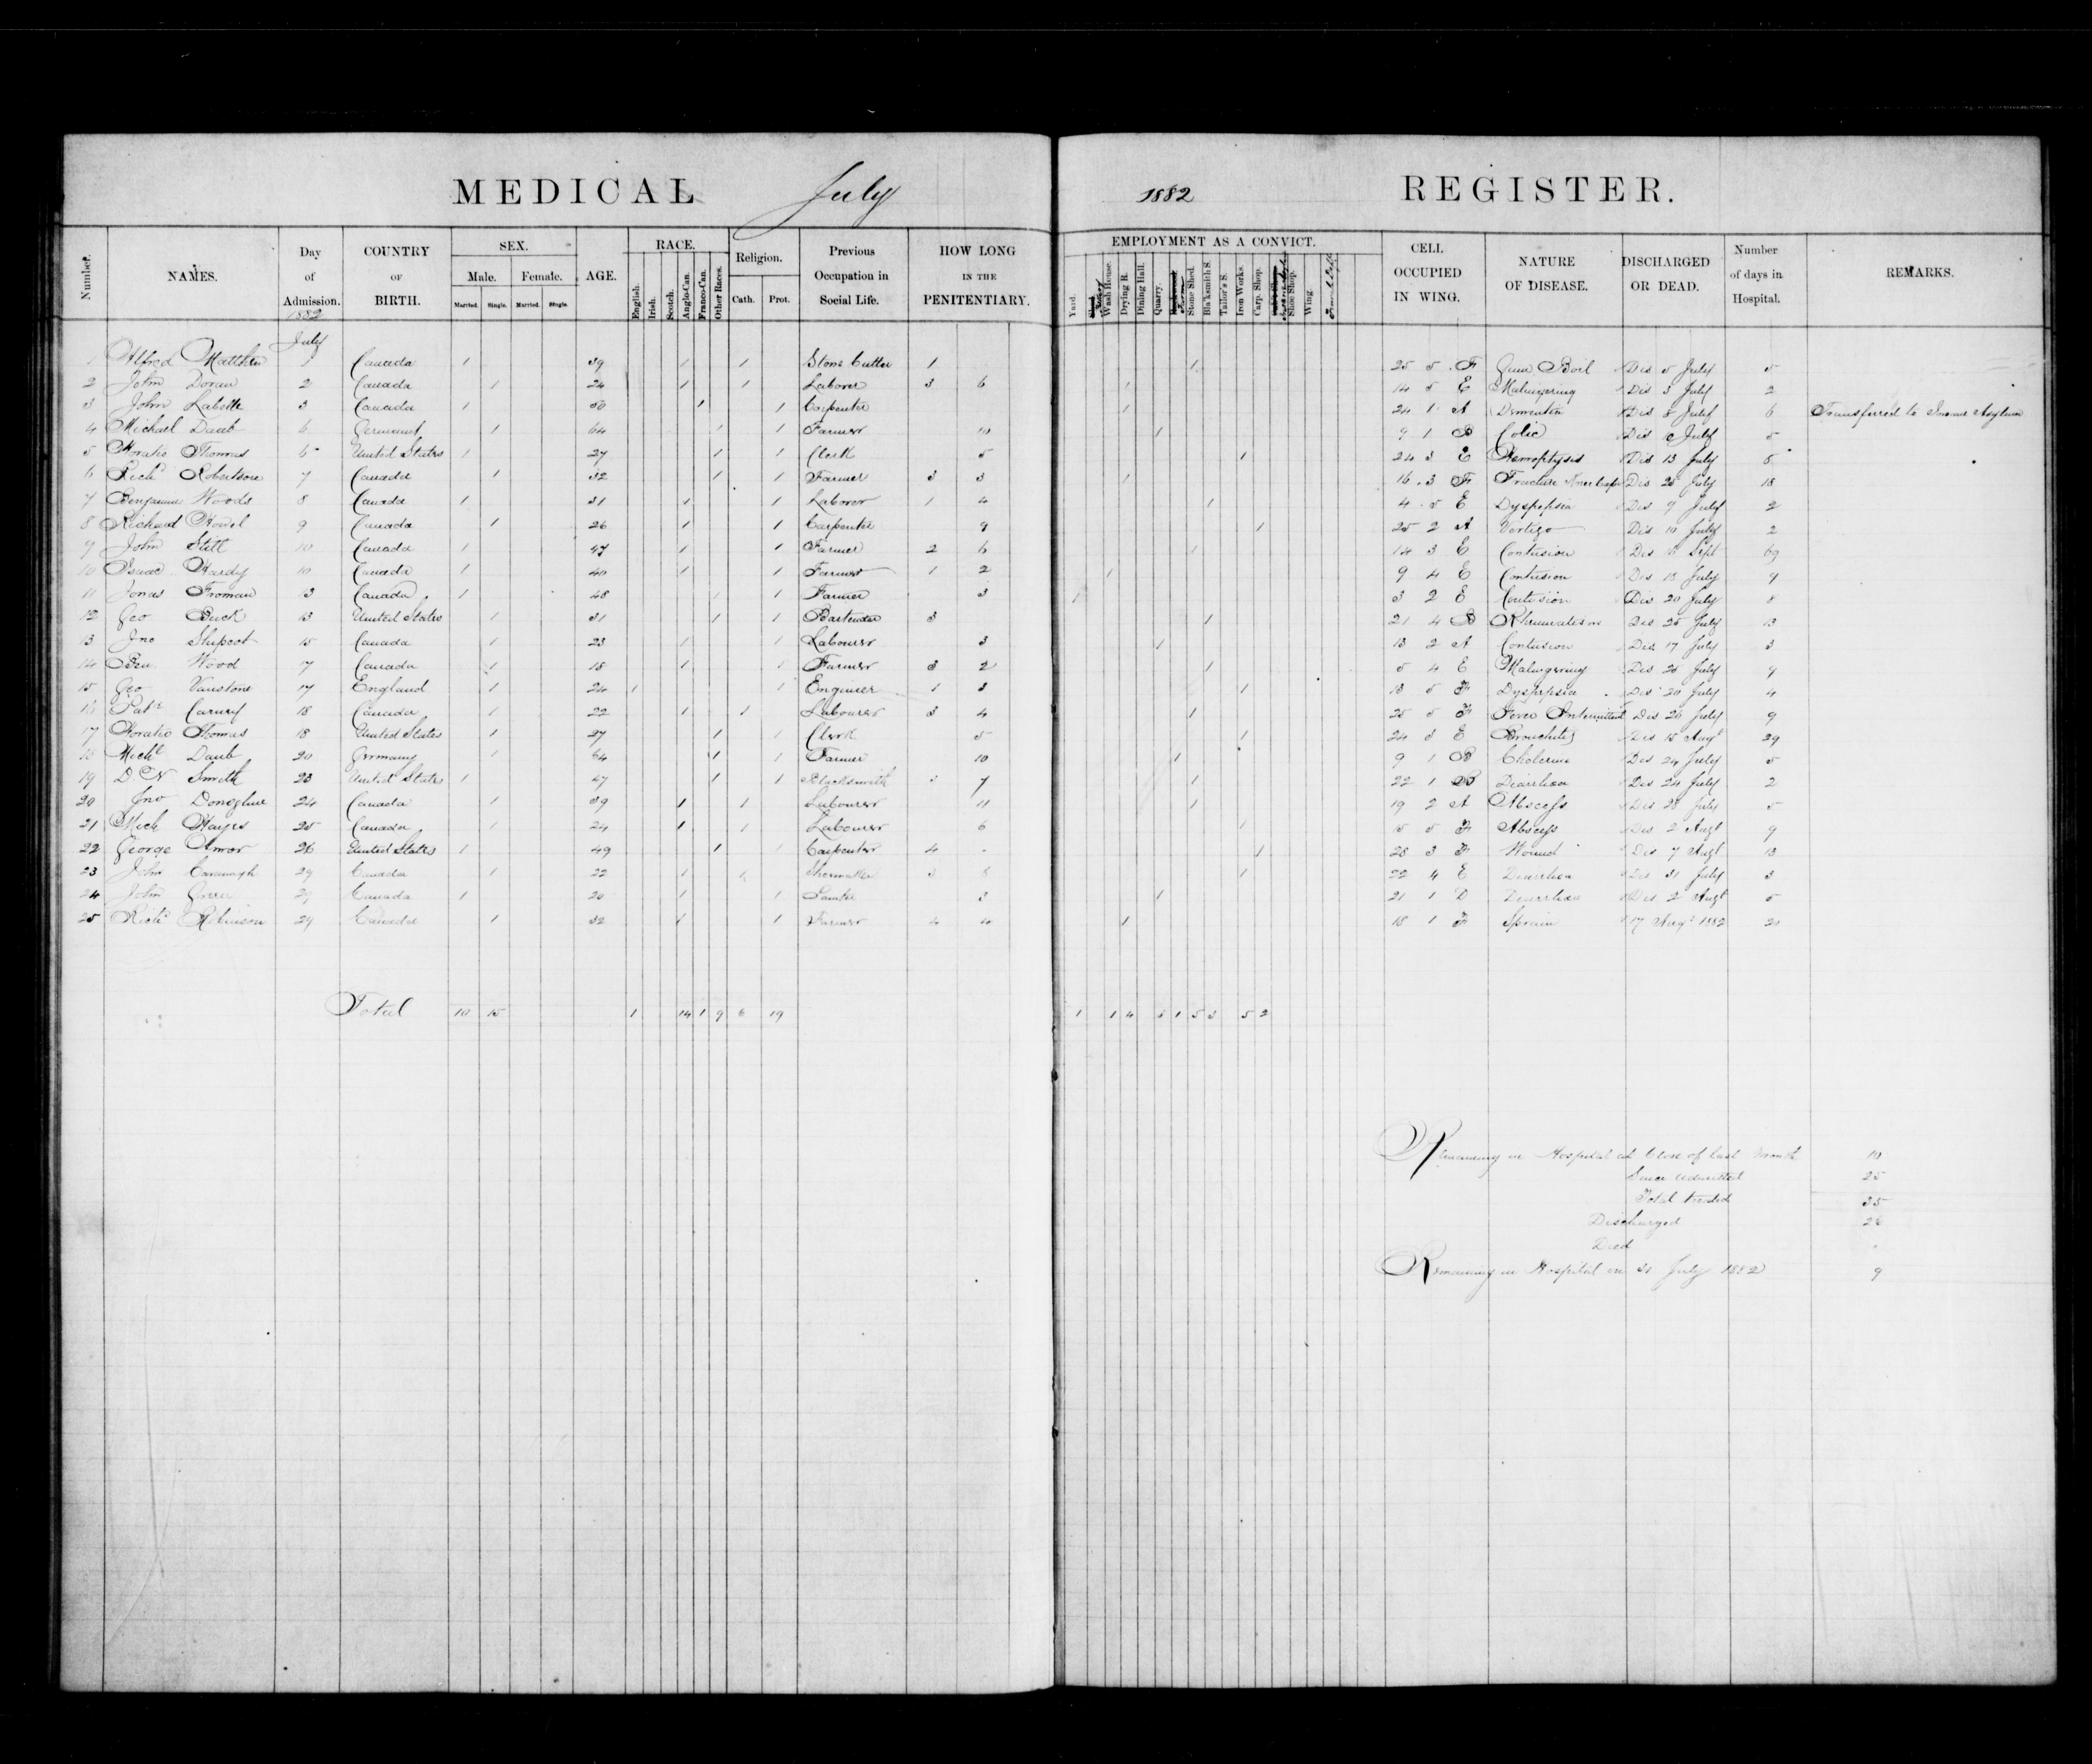 MEDICAL July 1882 REGISTER.
Number. NAMES. Day of Admission. 1882 COUNTRY OF BIRTH. SEX. Male. Female. Married. Single. Married. Single. AGE. RACE. English. Irish. Scotch. Anglo-Can. Franco-Can. Other Races. Religion. Cath. Prot. Previous Occupation in Social Life. HOW LONG IN THE PENITENTIARY. EMPLOYMENT AS A CONVICT. Yard. Wash House. Drying R. Dining Hall. Quarry. Stone Shed. Bla'ksmith S. Tailor's S. Iron Works. Carp. Shop. Shoe Shop. Wing. CELL OCCUPIED IN WING. NATURE OF DISEASE. DISCHARGED OR DEAD. Number of days in Hospital. REMARKS.
July
1 Alfred Matthew 1 Canada 1 39 1 1 Stone Cutter 1 1 25 5 F Gum Boil Dis 5 July 5
2 John Doran 2 Canada 1 24 1 1 Laborer 3 6 1 14 5 E Malingering Dis 3 July 2
3 John Labelle 3 Canada 1 50 1 1 Carpenter 1 24 1 A Dementia Dis 8 July 6 Transferred to Insane Asylum
4 Michael Daub 6 Germany 1 64 1 1 Farmer 10 1 9 1 B Colic Dis July 5
5 Horatio Thomas 6 United States 1 27 1 1 Clerk 5 1 24 3 E Hemoptysis Dis 13 July
6 Richd Robertson 7 Canada 1 32 1 1 Farmer 3 3 1 16 3 F Fracture Dis July 18
7 Benjamin Woods 8 Canada 1 31 1 1 Laborer 1 4 1 4 5 E Dyspepsia Dis 9 July 2
8 Richard Howel 9 Canada 1 26 1 1 Carpenter 9 1 25 2 A Vertigo Dis 10 July 2
9 John Still 10 Canada 1 47 1 1 Farmer 2 6 1 14 3 E Contusion Dis Sept 69
10 Isaac Hardy 10 Canada 1 40 1 1 Farmer 1 2 1 9 4 E Contusion Dis 18 July 9
11 Jonas Froman 13 Canada 1 48 1 1 Farmer 3 1 3 2 E Contusion Dis 20 July 8
12 Geo Buck 13 United States 1 31 1 1 Bartender 3 1 21 4 B Rheumatism Dis 25 July 13
13 Jno Shipcot 15 Canada 1 23 1 1 Labourer 3 1 13 2 A Contusion Dis 17 July 3
14 Ben Wood 17 Canada 1 18 1 1 Farmer 3 2 1 5 4 E Malingering Dis 25 July 9
15 Geo Vanstone 17 England 1 24 1 1 Engineer 1 3 1 18 5 F Dyspepsia Dis 20 July 4
16 Patk Carney 18 Canada 1 22 1 1 Labourer 3 4 1 25 5 F Fever Intermittent Dis 26 July 9
17 Horatio Thomas 18 United States 1 27 1 1 Clerk 5 1 24 3 E Bronchitis Dis 15 Augt 29
18 Michl Daub 20 Germany 1 64 1 1 Farmer 10 1 9 1 B Cholerine Dis 24 July 5
19 D N Smith 23 United States 1 47 1 1 Blacksmith 7 1 22 1 B Diarrhœa Dis 24 July 2
20 Jno Donoghue 24 Canada 1 39 1 1 Labourer 11 1 19 2 A Abscess Dis 28 July 5
21 Mich Hayes 25 Canada 1 24 1 1 Labourer 6 1 15 5 F Abscess Dis 2 Augt 9
22 George Amor 26 United States 1 49 1 1 Carpenter 4 1 28 3 F Wound Dis 7 Augt 13
23 John Cavanagh 29 Canada 1 22 1 1 Shoemaker 3 8 1 22 4 E Diarrhœa Dis 31 July 3
24 John Green 29 Canada 1 20 1 1 Painter 3 1 21 1 D Diarrhœa Dis 2 Augt 5
25 Richd Robinson 29 Canada 1 32 1 1 Farmer 4 4 1 18 1 F Sprain 17 Augt 1882 20
Total 10 15 1 14 1 9 6 19 1 1 4 3 1 5 3 5 2
Remaining in Hospital at Close of last Month 10
Since admitted 25
Total treated 35
Discharged 26
Died
Remaining in Hospital on 31 July 1882 9